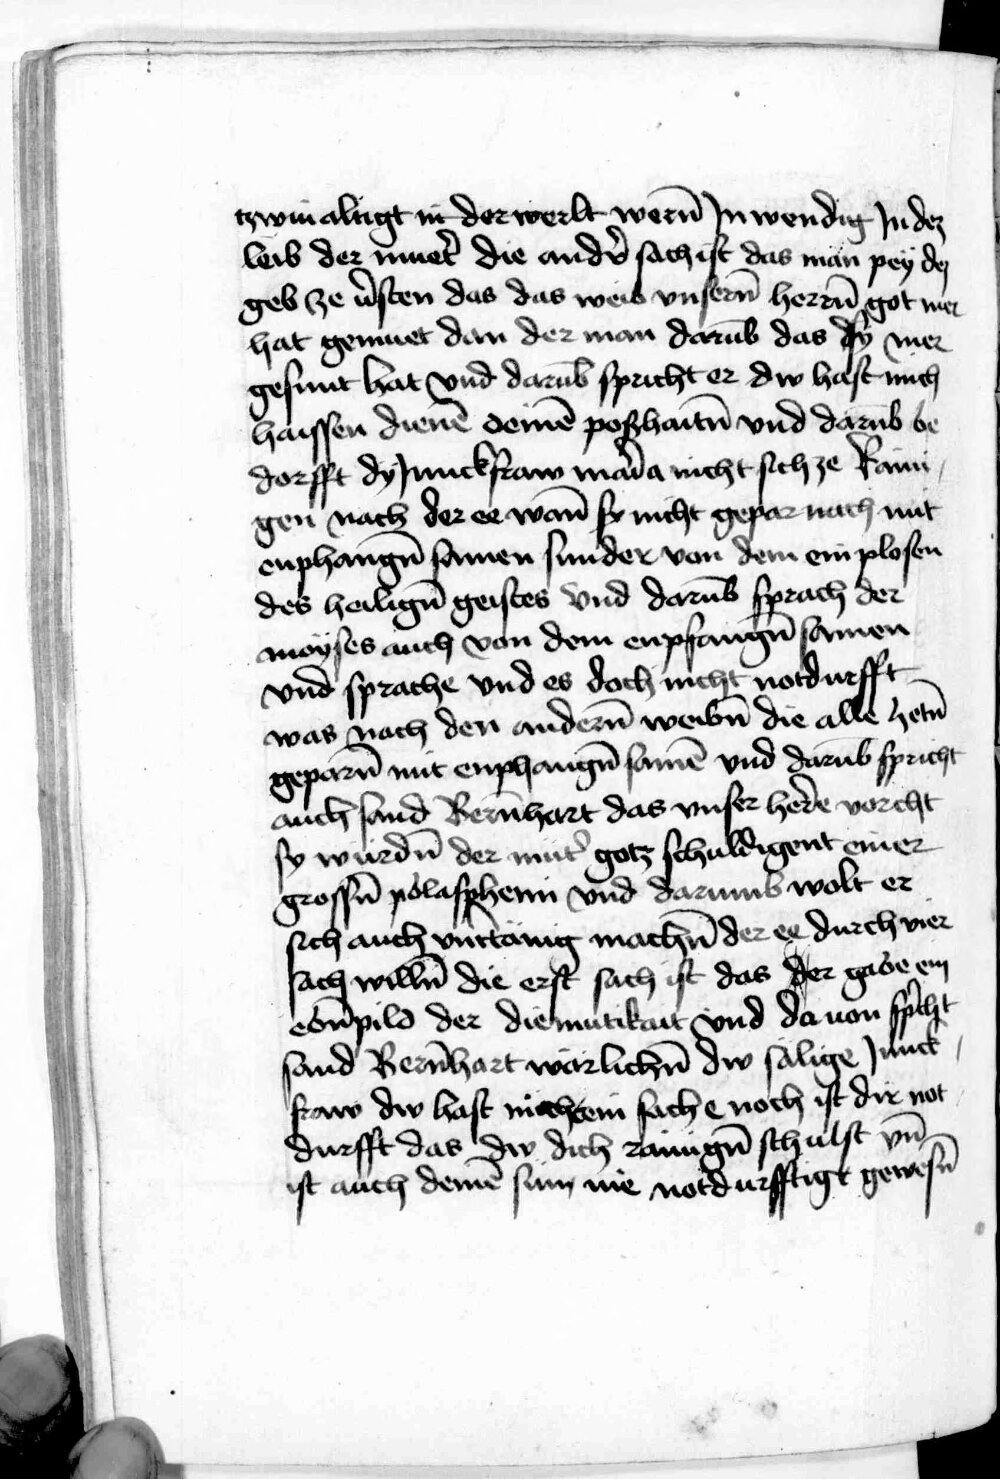 tzwinaltigt in der werlt wern̄ Jnwendig Jn dez
leib der muet̄ die and̄r sach ist das man pey dez
geb ze v̄sten das das weib vnsern̄ herrn̄ got mer
hat gemuet dan der man darūb das sy mer
gesunt hat vnd darūb spricht er dw hast mich
haissen dienē deinē poßhaitn̄ vnd darūb be
dorfft dy Junckfraw maria nicht sich ze Raini
gen nach der ee wan̄ sy nicht gepar nach mit
enphangn̄ samen sunder von dem ein plosen
des heilign̄ geistes vnd darūb sprach der
moyses auch von dem enpfangn̄ samen
vnd sprache vnd es doch nicht notdurfft
was nach den andern̄ weibn̄ die alle hetn̄
geparn̄ mit enphangn̄ samē vnd darūb spricht
auch sand Bern̄hart das vnser here vorcht
sy wurdn̄ der mut̄ gotz schuldigent einer
grossn̄ polasphemi vnd darumb wolt er
sich auch vnttanig machn̄ der ee durch vier
sach willn̄ die erst sach ist das der gabe ein
ebn̄pild der diemutikait vnd da von spricht
sand Bern̄hart warlichn̄ dw salige Junck
fraw dw hast nicht ein sache noch ist dir not
durfft das dw dich rainign̄ schulst vn̄
ist auch deinē sun nie notdurfftigt gewesn̄